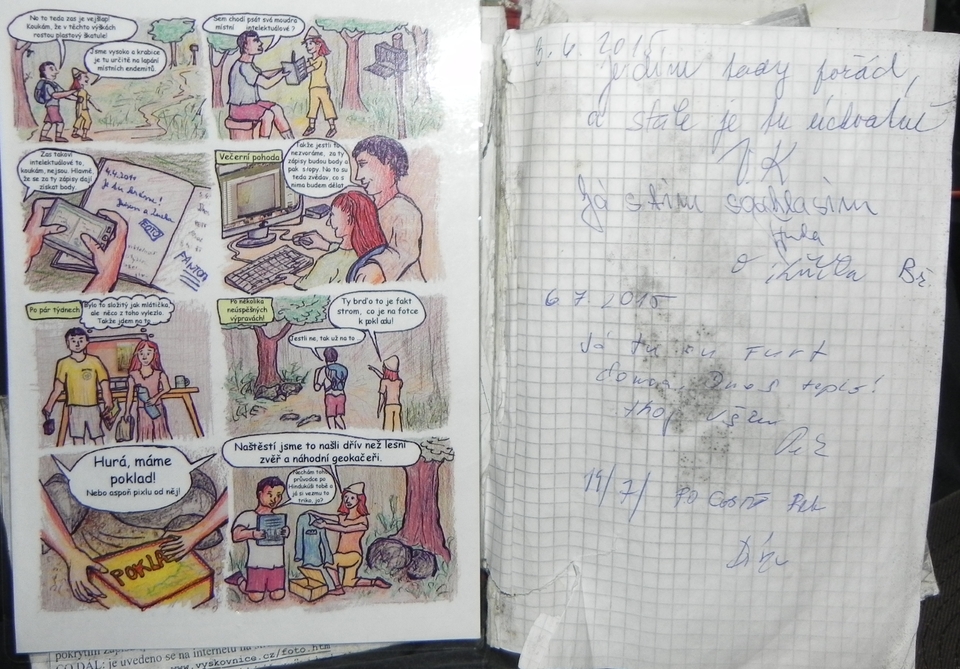 No to teda zas je vejšlap!
Koukám, že v těchto výškách
rostou plastový škatule!
Jsme vysoko a krabice
je tu určitě na lapání
místních endemitů.
Sem chodí psát svá moudra
místní intelektuálové?
Zas takoví
intelektuálové to,
koukám, nejsou. Hlavně,
že se za ty zápisy dají
získat body.
4.4.2011
Je tu krásně!
a
PANTON
Večerní pohoda
Takže jestli to
nezvoráme, za ty
zápisy budou body a
pak srapy. No to su
teda zvědav, co s
nima budem dělat.
Po pár týdnech
Bylo to složitý jak mlátička,
ale něco z toho vylezlo.
Takže jdem na to.
Po několika
neúspěšných
výpravách!
Ty brďo to je fakt
strom, co je na fotce
k pokladu!
Jestli ne, tak už na to
Hurá, máme
poklad!
Nebo aspoň pixlu od něj!
POKLAD
Naštěstí jsme to našli dřív než lesní
zvěř a náhodní geokačeři.
Nechám toho
průvodce po
Hindukúši tobě a
já si vezmu to
triko, jo?
CO DÁL: je uvedeno se na internetu na
www.vyskovnice.cz/foto.htm
6. 2015
Jezdím tady pořád,
a stále je tu úchvatně
V.K
Já s tím souhlasím
a Bř.
6 7 2015
Já tu su furt
doma. Dnes teplo!
Ahoj všem
14/7/ po cestě